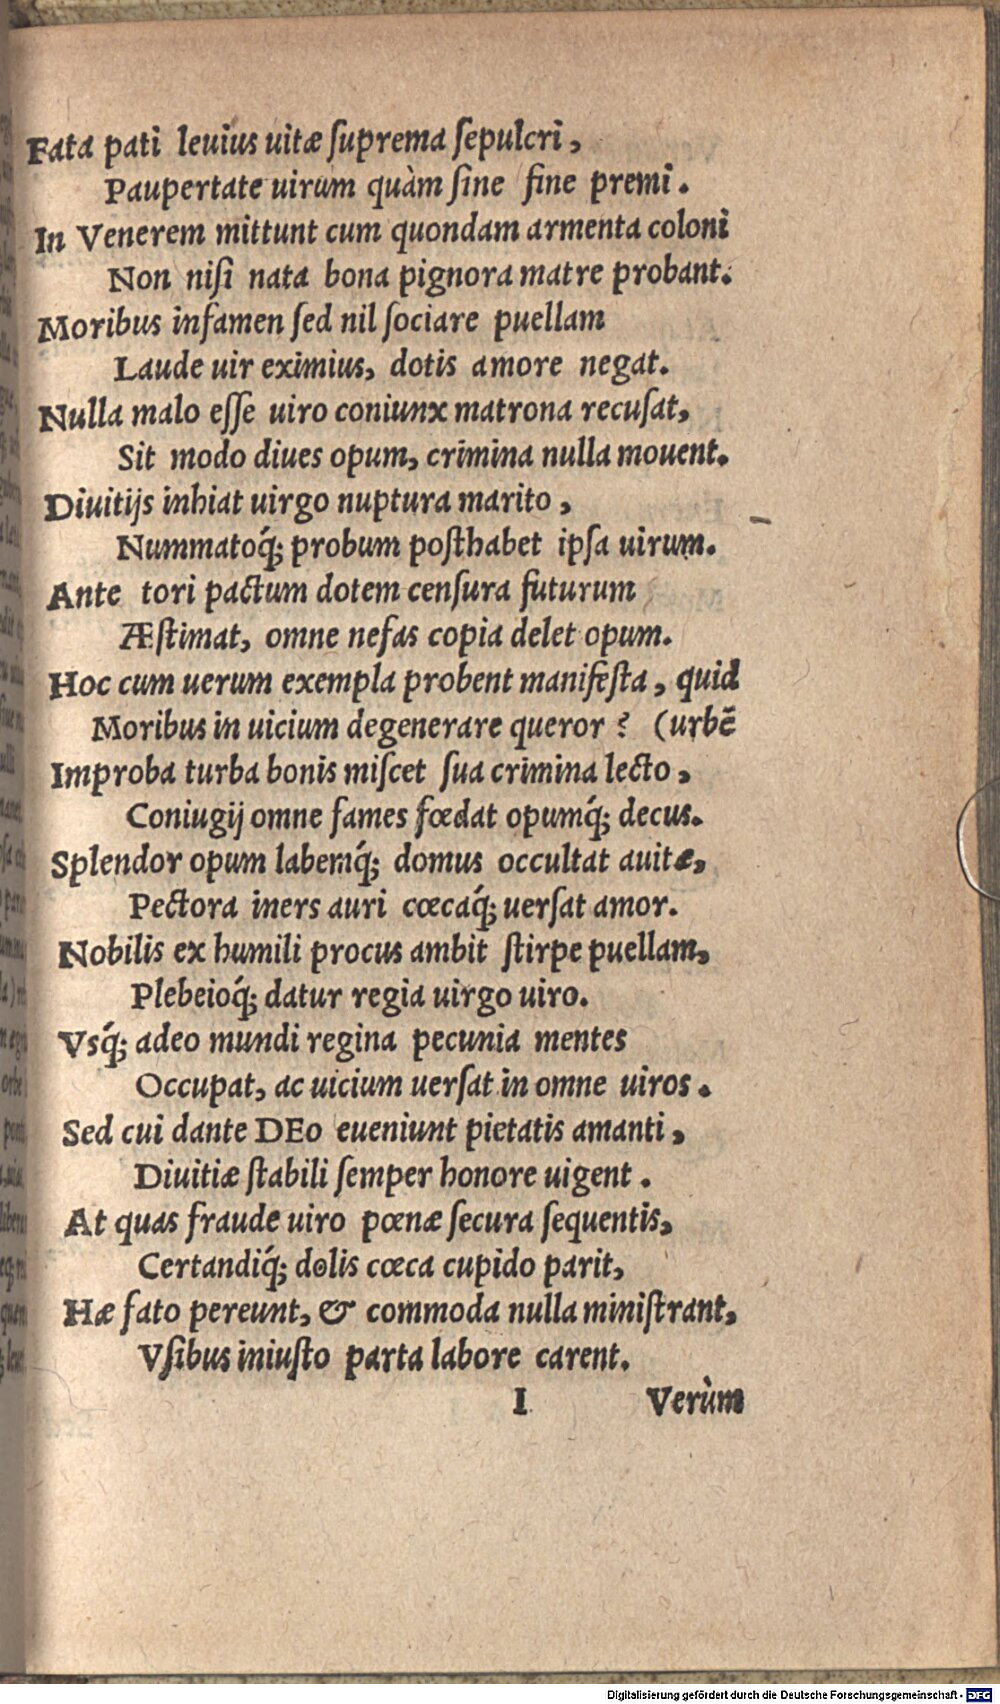 Fata pati leuius uitæ ſuprema ſepulcri,
Paupertate uirum quàm ſine fine premi.
In Venerem mittunt cum quondam armenta coloni
Non niſi nata bona pignora matre probant.
Moribus infamen ſed nil ſociare puellam
Laude uir eximius, dotis amore negat.
Nulla malo eſſe uiro coniunx matrona recuſat,
Sit modo diues opum, crimina nulla mouent.
Diuitijs inhiat uirgo nuptura marito,
Nummatoq́; probum poſthabet ipſa uirum.
Ante tori pactum dotem cenſura futurum
Æſtimat, omne nefas copia delet opum.
Hoc cum uerum exempla probent manifeſta, quid
Moribus in uicium degenerare queror? (urbē
Improba turba bonis miſcet ſua crimina lecto,
Coniugij omne fames fœdat opumq́; decus.
Splendor opum labemq́; domus occultat auitæ,
Pectora iners auri cœcaq́; uerſat amor.
Nobilis ex humili procus ambit ſtirpe puellam,
Plebeioq́; datur regia uirgo uiro.
Vsq́; adeo mundi regina pecunia mentes
Occupat, ac uicium uerſat in omne uiros.
Sed cui dante DEo eueniunt pietatis amanti,
Diuitiæ ſtabili ſemper honore uigent.
At quas fraude uiro pœnæ ſecura ſequentis,
Certandiq́; dolis cœca cupido parit,
Hæ fato pereunt, & commoda nulla miniſtrant,
Vſibus iniuſto parta labore carent.
I Verùm
Digitalisierung gefördert durch die Deutsche Forschungsgemeinschaft - DFG